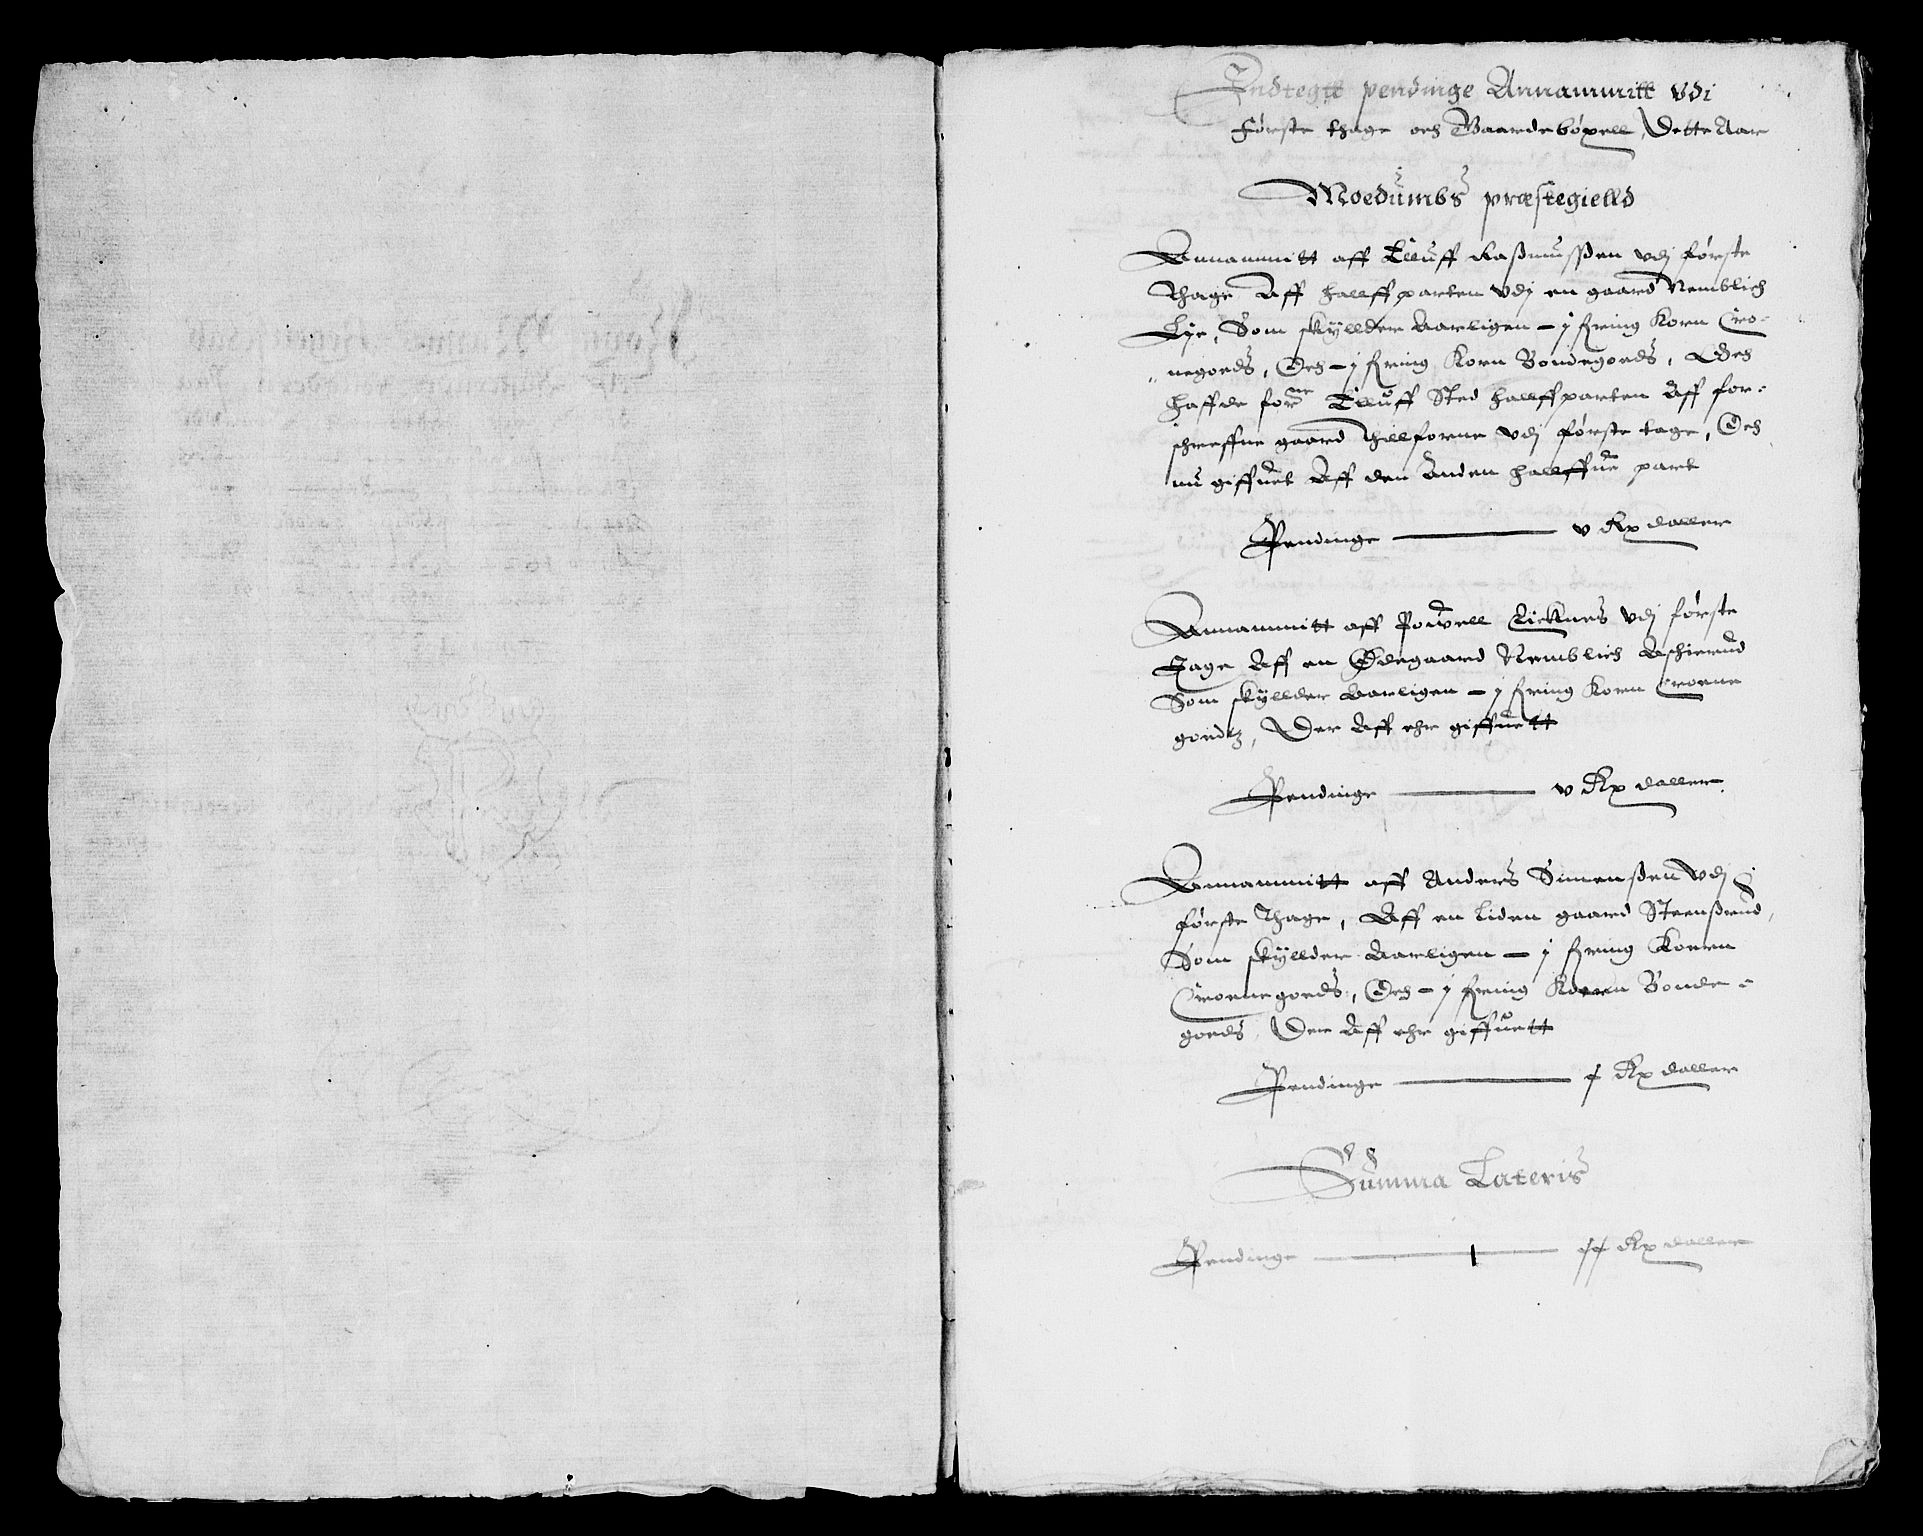 Indtegtt pendinge Annammitt vdi
første thage och Baardebøxell, Dette Aar
Moedumbs præstegielld
Annammitt aff Elluff Rasmussen vdj første
Thage Aff hallffparten vdj en gaard Nemblich
Lye, Som skyllder Aarligen – j fring Korn Cro-
negoeds, Och – j fring Korn Bondegoeds, Och
haffde forne Elluff Sted hallffparten Aff for-
schreffne gaard thillforne vdj første tage, Och
nu giffuet Aff den Anden hallffue part
Pendinge — v Rx daller
Annammitt aff Powell vdj første
Tage Aff en Ødegaard Nemblich Aschierud
Som skyllder Aarligen – j fring Korn Croene
goedtz, Der Aff ehr giffuett
Pendinge — v Rx daller
Annammitt aff Anders Simenssen vdj
første Thage, Aff en liden gaard Steensrud,
Som skyllder Aarligen – j fring Korrn
Croenegoeds, Och – j fring Korrn Bonde-
goeds, Der Aff ehr giffuett
Pendinge — j Rx daller
Summa Lateris
Pendinge — Rx daller